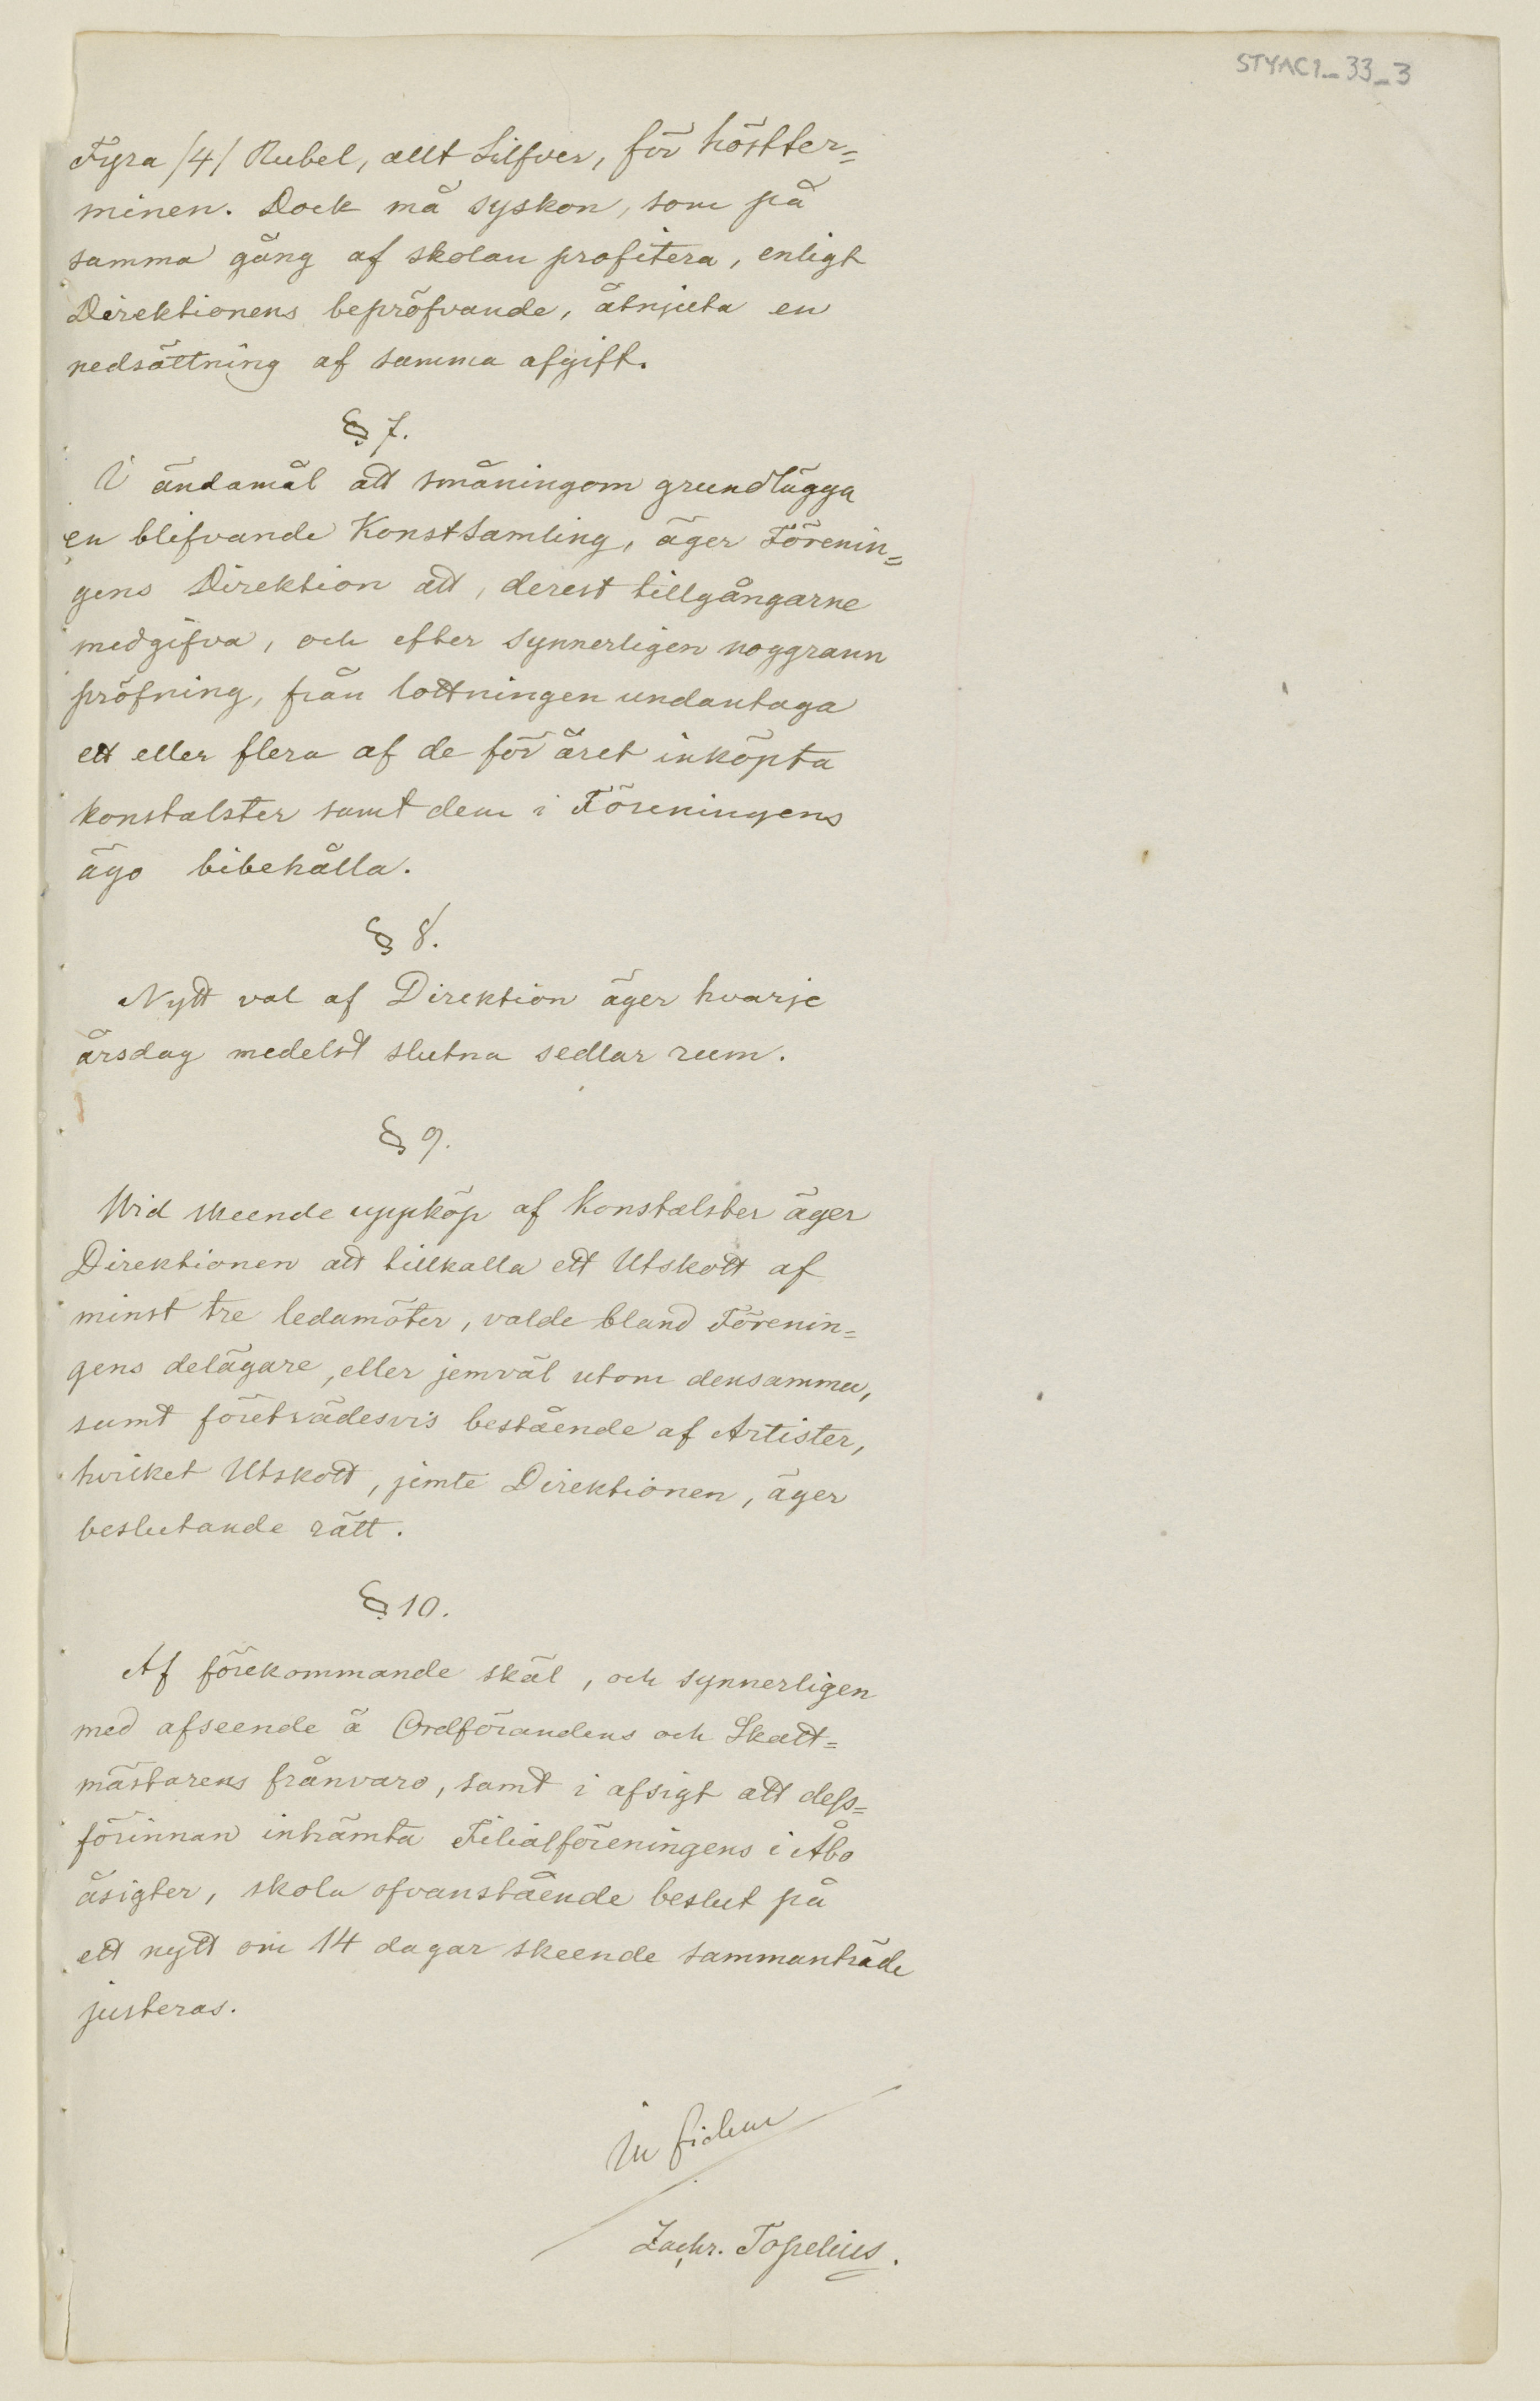 STYAC1_33_3
Fyra /4/ Rubel, allt Silfver, för höstter=
minen. Dock må syskon, som på
samma gång af skolan profitera, enligt
Direktionens bepröfvande, åtnjuta en
nedsättning af samma afgift.
§ 7.
I ändamål att småningom grundlägga
en blifvande Konstsamling, äger Förenin=
gens Direktion att, derest tillgångarne
medgifva, och efter synnerligen noggrann
pröfning, från lottningen undantaga
ett eller flera af de för året inköpta
konstalster samt dem i Föreningens
ägo bibehålla.
§ 8.
Nytt val af Direktion äger hvarje
årsdag medelst slutna sedlar rum.
§ 9.
Wid skeende uppköp af Konstalster äger
Direktionen att tillkalla ett Utskott af
minst tre ledamöter, valde bland Förenin=
gens delägare, eller jemväl utom densamma,
samt företrädesvis bestående af Artister,
hvilket Utskott, jemte Direktionen, äger
beslutande rätt.
§ 10.
Af förekommande skäl, och synnerligen
med afseende å Ordförandens och Skatt=
mästarens frånvaro, samt i afsigt att dess=
förinnan inhämta Filialföreningens i Åbo
åsigter, skola ofvanstående beslut på
ett nytt om 14 dagar skeende sammanträde
justeras.
In fidem
Zachr. Topelius.